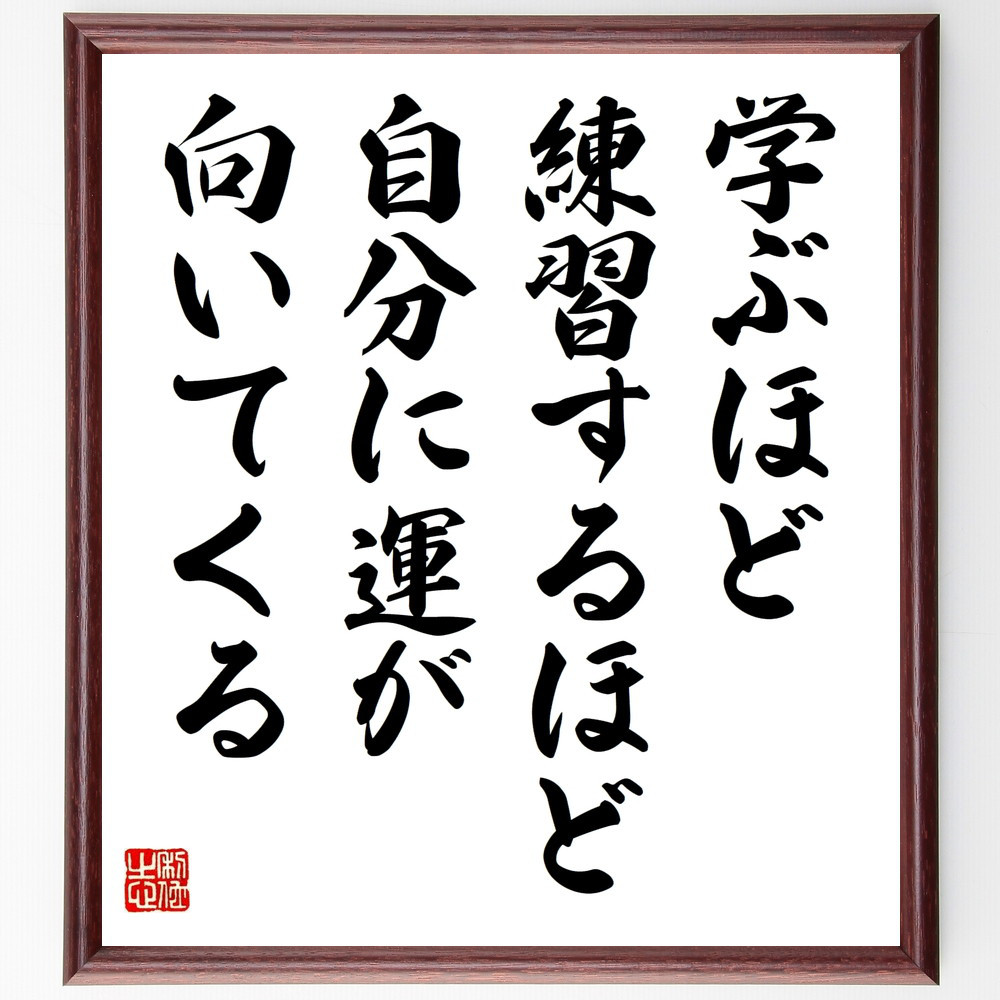 学ぶほど
練習するほど
自分に運が
向いてくる